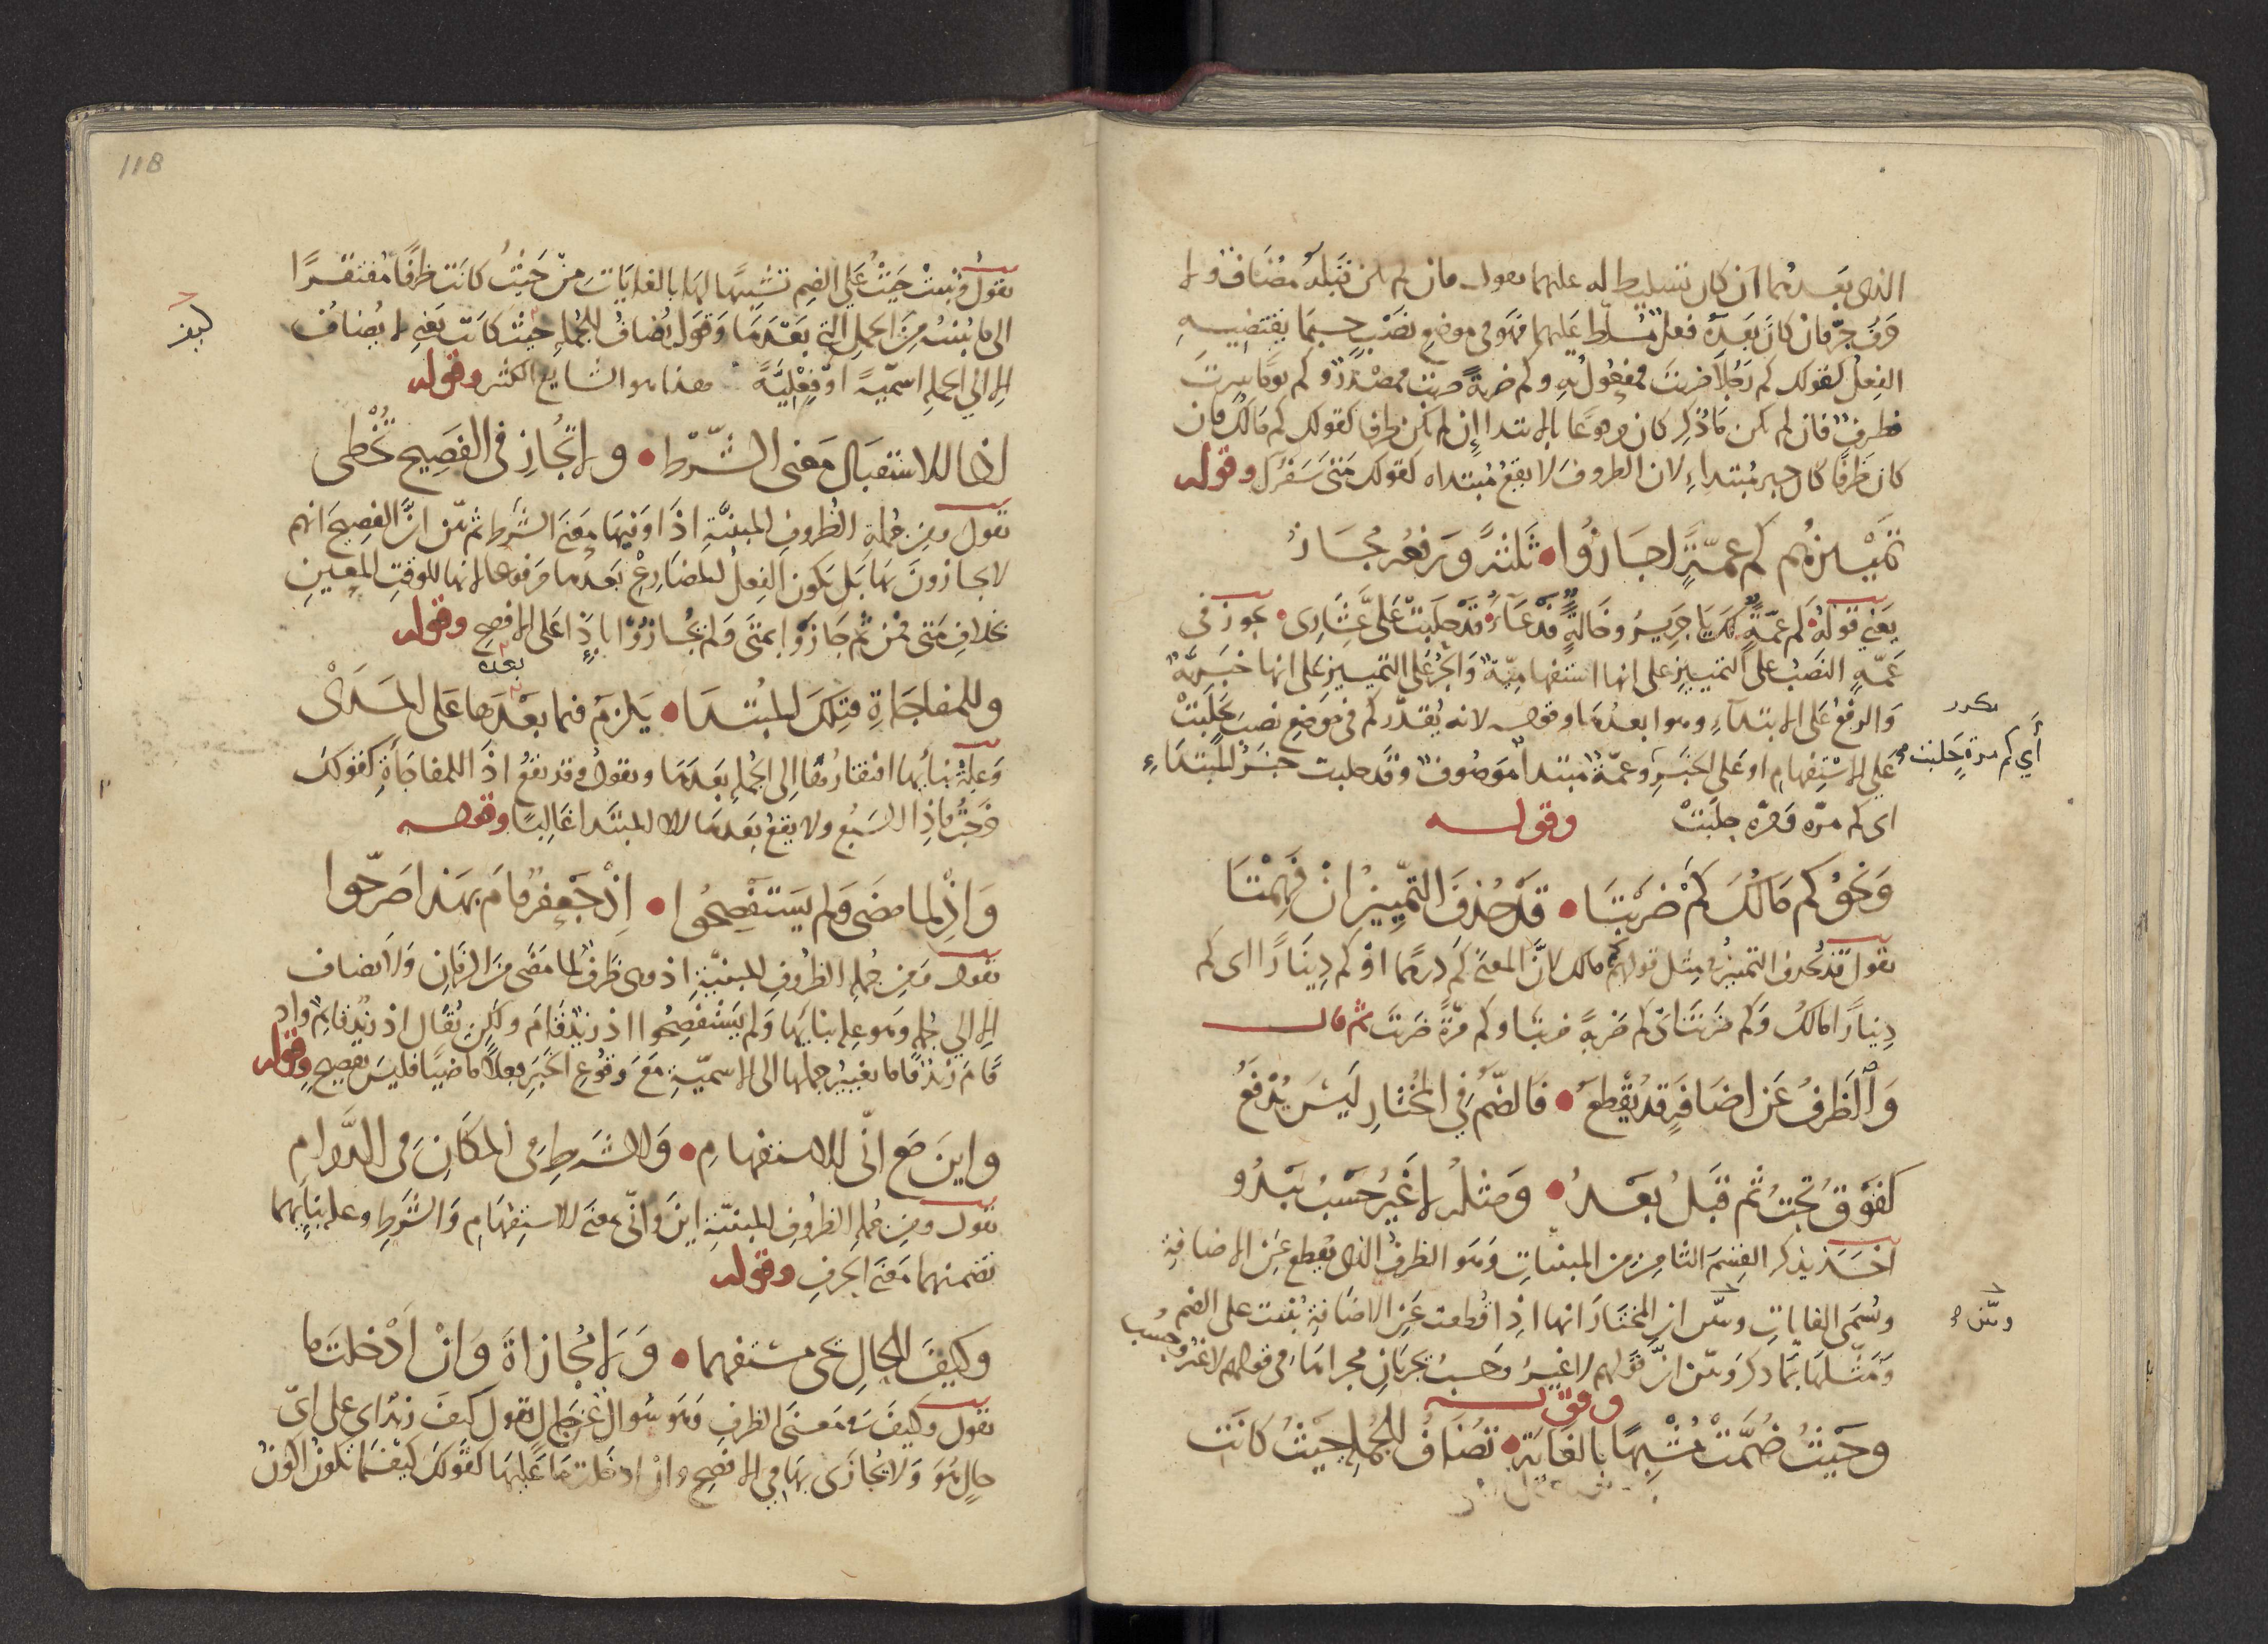 الذي بعدهما ان كان تسليط له عليهما يقول فان لم يكن قبله مضاف ولا
حرف جر فان كان بعده فعل مسلط عليهما فهو في موضع نصب حسبما يقتضيه
الفعل كقولك كم رجلا ضربت فمفعول به وكم ضربة ضربت فمصدر وكم يوما سرت
فظرف فان لم يكن ما ذكر كان مرفوعا بالابتدا ان لم يكن ظرفا كقولك كم مالك فان
كان ظرفا كان خبر مبتداء لان الظروف لا يقع مبتداه كقولك متى سفرك وقوله
تمييزهم كم عمة اجازوا • ثلثة ورفعه مجاز
يعني قوله كم عمة لك يا جرير وخالة • فدعاء قد حلبت علي عشاري • يجوز في
عمة النصب على التمييز على انها استفهامية والجر على التمييز على انها خبرية
والرفع على الابتداء وهو ابعدها وقوله لانه يقدر كم في موضع نصب بحلبت
على الاستفهام او على الخبر وعمة مبتدا موصوف وقد حلبت خبر المبتداء
مكرر
أي كم مرة حلبت
اي كم مرة فمرة حلبت وقوله
ونحو كم مالك كم ضربتا • قد حذف التمييز ان فهمتا
يقول قد يحذف التمييز في مثل قولهم كم مالك لان المعنى كم درهما او كم دينارا اي كم
دينارا مالك وكم ضربتا اي كم ضربة ضربتا او كم مرة ضربت ثم قال
والظرف عن اضافة قد يقطع • فالضم في المختار ليس يدفع
كفوق تحت ثم قبل بعد • ومثله لا غير حسب يبدو
اخذ يذكر القسم الثامن من المبنيات وهو الظرف الذي يقطع عن الاضافة
وسمي الغايات وبين ان المختار انها اذا قطعت عن الاضافة بنيت على الضم
وبين
ومثلها بما ذكر وبين ان قولهم لا غير وحسب يجريان مجراها في قولهم لا غير وحسب
وقوله
وحيث ضمت مشبها بالغاية • تضاف للجملة حيث كانت
118
يقول وبنيت حيث على الضم تشبيها لها بالغايات من حيث كانت ظرفا مفتقرا
الى ما يبينه من الجمل التي بعدها وقوله يضاف للجملة حيث كانت يعني لا يضاف
الا الي الجملة اسمية او فعلية هذا هو الشايع الكثير وقوله
اذا للاستقبال معنى الشرط • ولا تجاز في الفصيح تخطى
يقول ومن جملة الظروف المبنية اذا وفيها معنى الشرط ثم بين ان الفصيح انهم
لا يجازون بها بل يكون الفعل المضارع بعدها مرفوعا لانها للوقت المعين
بخلاف متى فمن ثم جازوا بمتى ولم يجازوا باذا على الافصح وقوله
بعده
وللمفاجاة فتلك المبتدا • يلزم فيما بعدها على المدى
وعلة بنايها افتقارها الى الجملة بعدها ويقول وقد يقع اذا للمفاجاة كقولك
خرجت فاذا السبع ولا يقع بعدها الا المبتدا غالبا وقوله
واذ لما مضى ولم يستفصحوا • اذ جعفر قام بهذا صرحوا
يقول ومن جملة الظروف المبنية اذ وهي ظرف لما مضى من الزمان ولا يضاف
الا الي جملة وهو علة بنايها ولم يستفصحوا اذ زيد قام ولكن يقال اذ زيد قايم واذ
قام زيد فاما تغيير جملها الى الاسمية مع وقوع الخبر فعلا ماضيا فليس بفصيح وقوله
واين مع انى للاستفهام • والشرط في المكان في الدوام
يقول ومن جملة الظروف المبنية اين وانى بمعنى الاستفهام والشرط وعلة بنايهما
تضمنهما معنى الحرف وقوله
وكيف للحال تجي مستفهما • وبلا مجازاة وان ادخلت ما
يقول وكيف في معنى الظرف وهو سؤال عن حال تقول كيف زيد اي على اي
حال هو ولا يجازى بها في الافصح وان ادخلت ما عليها كقولك كيفما تكون اكون